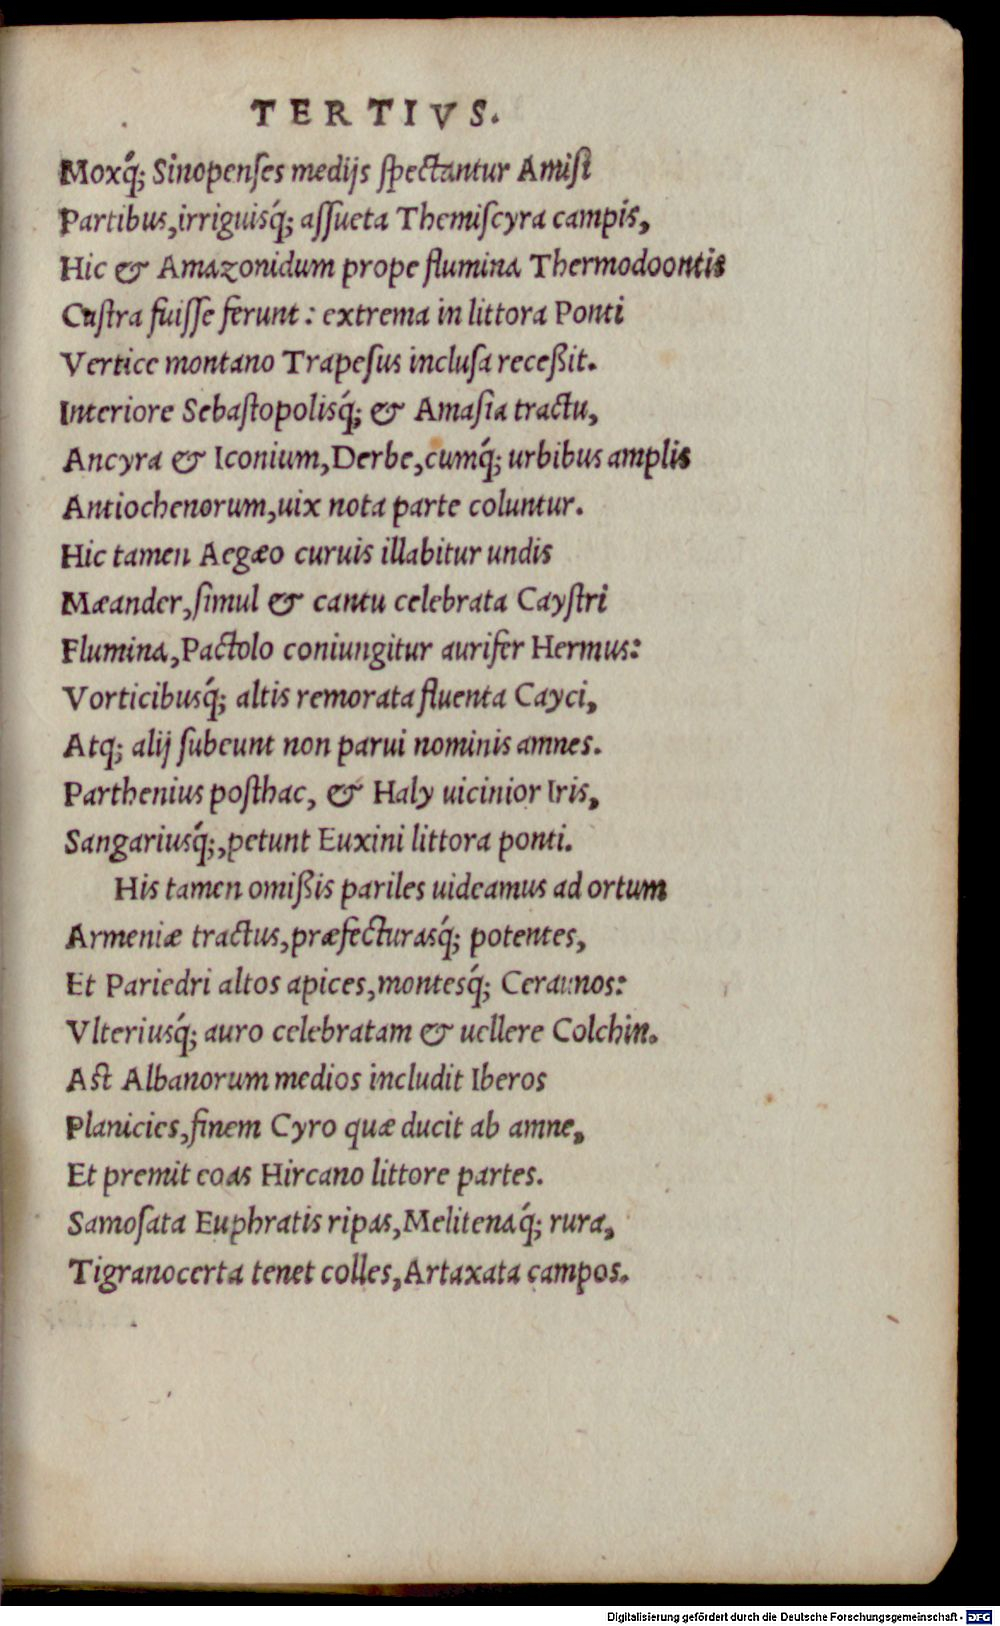 TERTIVS.
Moxq́; Sinopenses medijs spectantur Amisi
Partibus, irriguisq́; assueta Themiscyra campis,
Hic & Amazonidum prope flumina Thermodoontis
Castra fuisse ferunt: extrema in littora Ponti
Vertice montano Trapesus inclusa receßit.
Interiore Sebastopolisq́; & Amasia tractu,
Ancyra & Iconium, Derbe, cumq́; urbibus amplis
Antiochenorum, uix nota parte coluntur.
Hic tamen Aegæo curuis illabitur undis
Mæander, simul & cantu celebrata Caystri
Flumina, Pactolo coniungitur aurifer Hermus:
Vorticibusq́; altis remorata fluenta Cayci,
Atq; alij subeunt non parui nominis amnes.
Parthenius posthac, & Haly uicinior Iris,
Sangariusq́;, petunt Euxini littora ponti.
His tamen omißis pariles uideamus ad ortum
Armeniæ tractus, præfecturasq́; potentes,
Et Pariedri altos apices, montesq́; Ceraunos:
Vlteriusq́; auro celebratam & uellere Colchin.
Ast Albanorum medios includit Iberos
Planicies, finem Cyro quæ ducit ab amne,
Et premit eoas Hircano littore partes.
Samosata Euphratis ripas, Melitenaq́; rura,
Tigranocerta tenet colles, Artaxata campos.
Digitalisierung gefördert durch die Deutsche Forschungsgemeinschaft - DFG